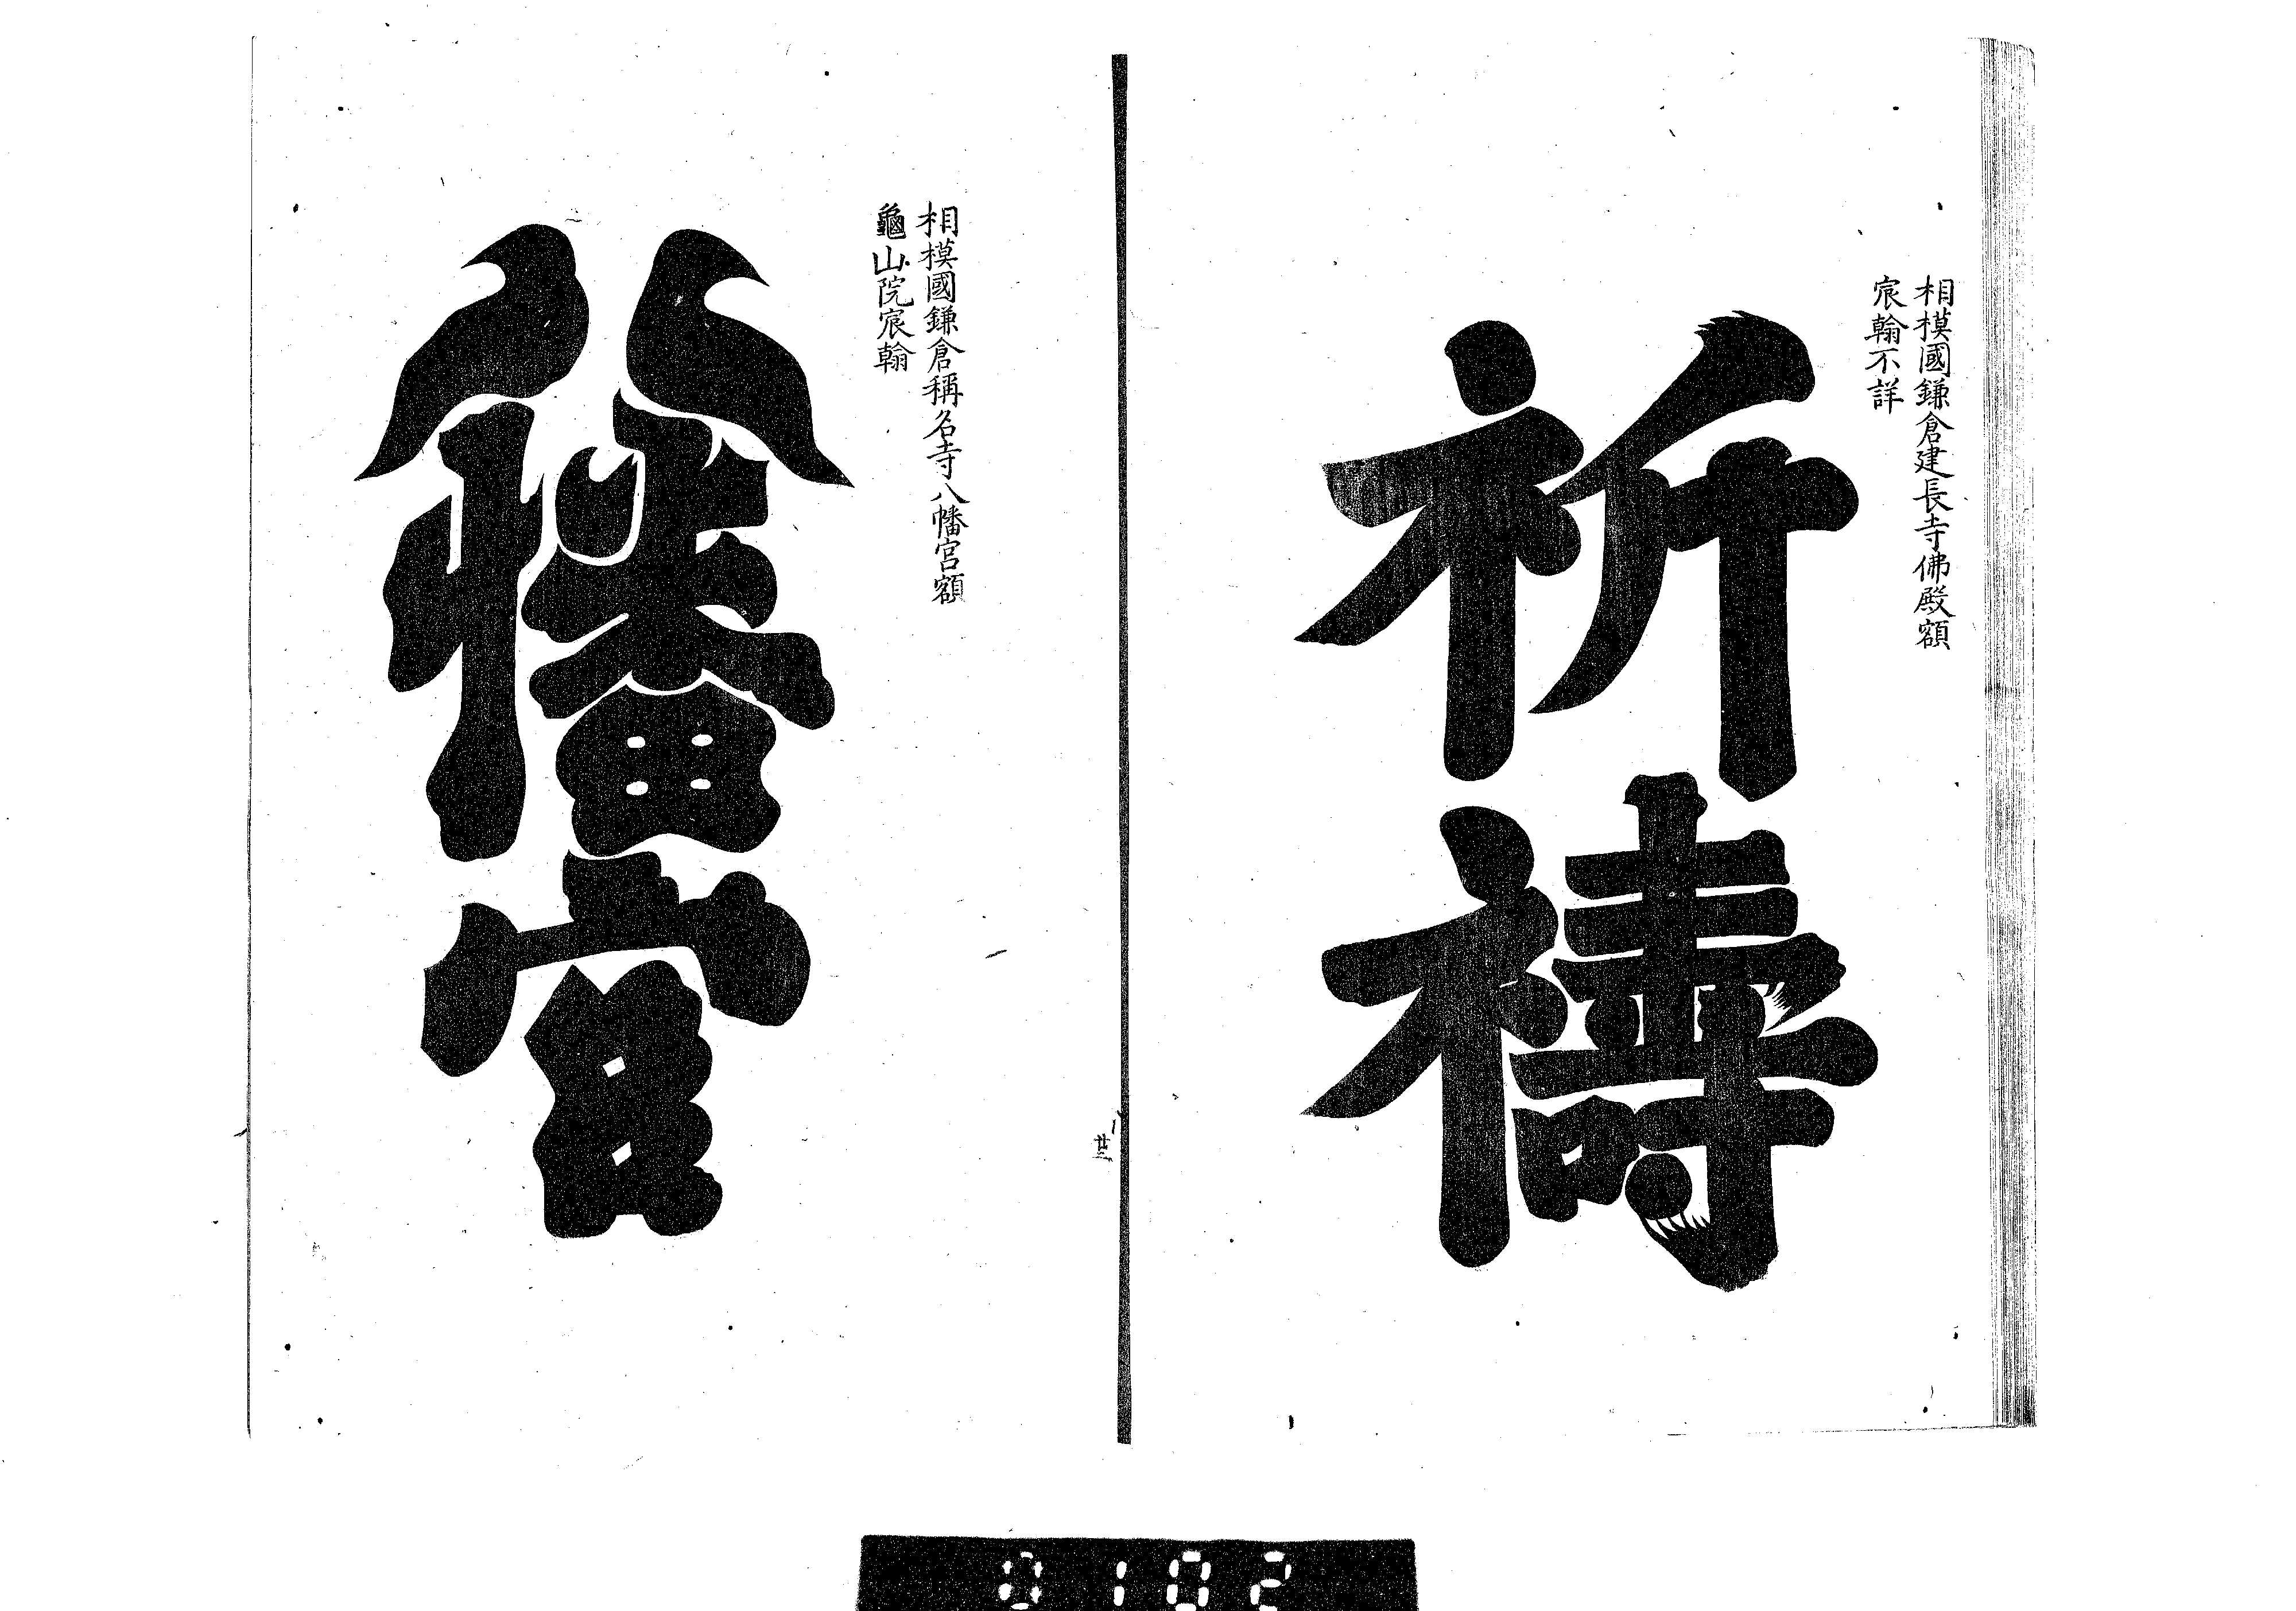 相模國鎌倉建長寺佛殿額
宸翰不詳
祈禱
相模國鎌倉稱名寺八幡宮額
龜山院宸翰
八幡宮
廿三
0102